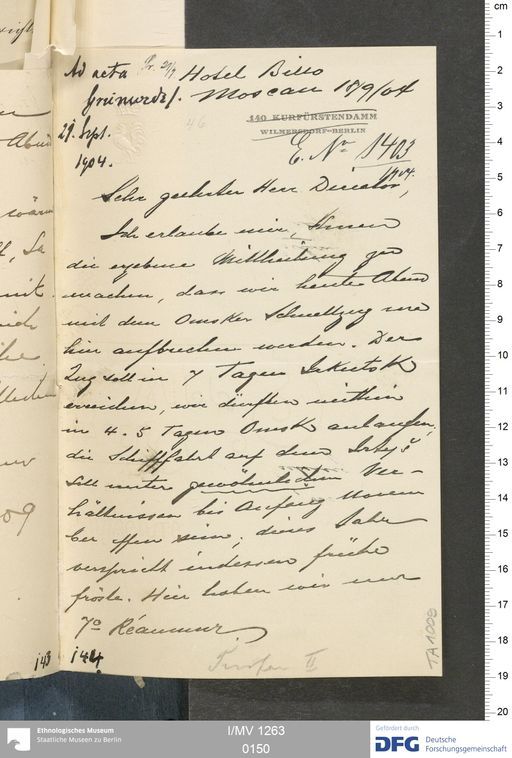 Ad acta Pr. 21/9 Hotel Billo
Grünwedel. Moscau 18/9/04
29. Sept.
1904.
46
140 KURFÜRSTENDAMM
WILMERSDORF-BERLIN
E. No 1403
1904.
Sehr geehrter Herr Director,
Ich erlaube mir, Ihnen
die ergebene Mittheilung zu
machen, dass wir heute Abend
mit dem Omsker Schnellzug von
hier aufbrechen werden. Der
Zug soll in 7 Tagen Irkutsk
erreichen, wir dürften mithin
in 4-5 Tagen Omsk anlaufen,
die Schifffahrt auf dem Irtyš
soll unter gewöhnlichen Ver-
hältnissen bis Anfang Novem
ber offen sein; dieses Jahr
verspricht indessen frühe
fröste. Hier haben wir nur
7° Réaumur.
Turfan II
143 144
TA 1008
cm
1
2
3
4
5
6
7
8
9
10
11
12
13
14
15
16
17
18
19
20
Ethnologisches Museum
Staatliche Museen zu Berlin
I/MV 1263
0150
Gefördert durch
DFG Deutsche
Forschungsgemeinschaft